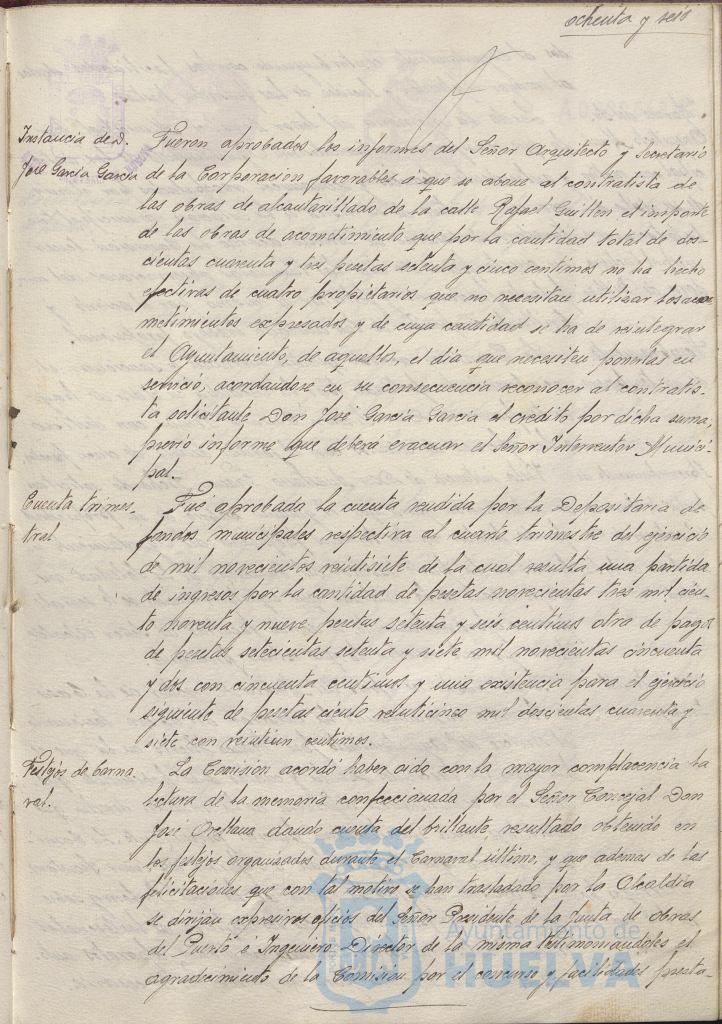 ochenta y seis
Instancia de D.
José García García
Fueron aprobados los informes del Señor Arquitecto y Secretario
de la Corporacion favorables a que se abone al contratista de
las obras de alcantarillado de la calle Rafael Guillen el importe
de las obras de acometimiento que por la cantidad total de dos-
cientas cuarenta y tres pesetas setenta y cinco centimos no ha hecho
efectivas de cuatro propietarios que no necesitan utilizar los aco-
metimientos expresados y de cuya cantidad se ha de reintegrar
el Ayuntamiento, de aquellos, el día que necesiten ponerlas en
servicio, acordandose en su consecuencia reconocer al contratis-
ta solicitante Don José García García el crédito por dicha suma,
previo informe que deberá evacuar el Señor Interventor Munici-
pal.
Cuenta trimes-
tral
Fué aprobada la cuenta rendida por la Depositaria de
fondos municipales respectiva al cuarto trimestre del ejercicio
de mil novecientos veintisiete de la cual resulta una partida
de ingresos por la cantidad de pesetas novecientas tres mil cien-
to noventa y nueve pesetas setenta y seis centimos otra de pagos
de pesetas setecientas setenta y siete mil novecientas cincuenta
y dos con cincuenta centimos y una existencia para el ejercicio
siguiente de pesetas ciento veinticinco mil doscientas cuarenta y
siete con veintiun centimos.
Festejos de Carna-
val.
La Comision acordó haber oido con la mayor complacencia la
lectura de la memoria confeccionada por el Señor Concejal Don
José Orellana dando cuenta del brillante resultado obtenido en
los festejos organizados durante el Carnaval último, y que ademas de las
felicitaciones que con tal motivo se han trasladado por la Alcaldía
se dirijan expresivos oficios del Señor Presidente de la Junta de obras
del Puerto é Ingeniero Director de la misma testimoniandoles el
agradecimiento de la Comision por el concurso y facilidades presta-
Ayuntamiento de
HUELVA